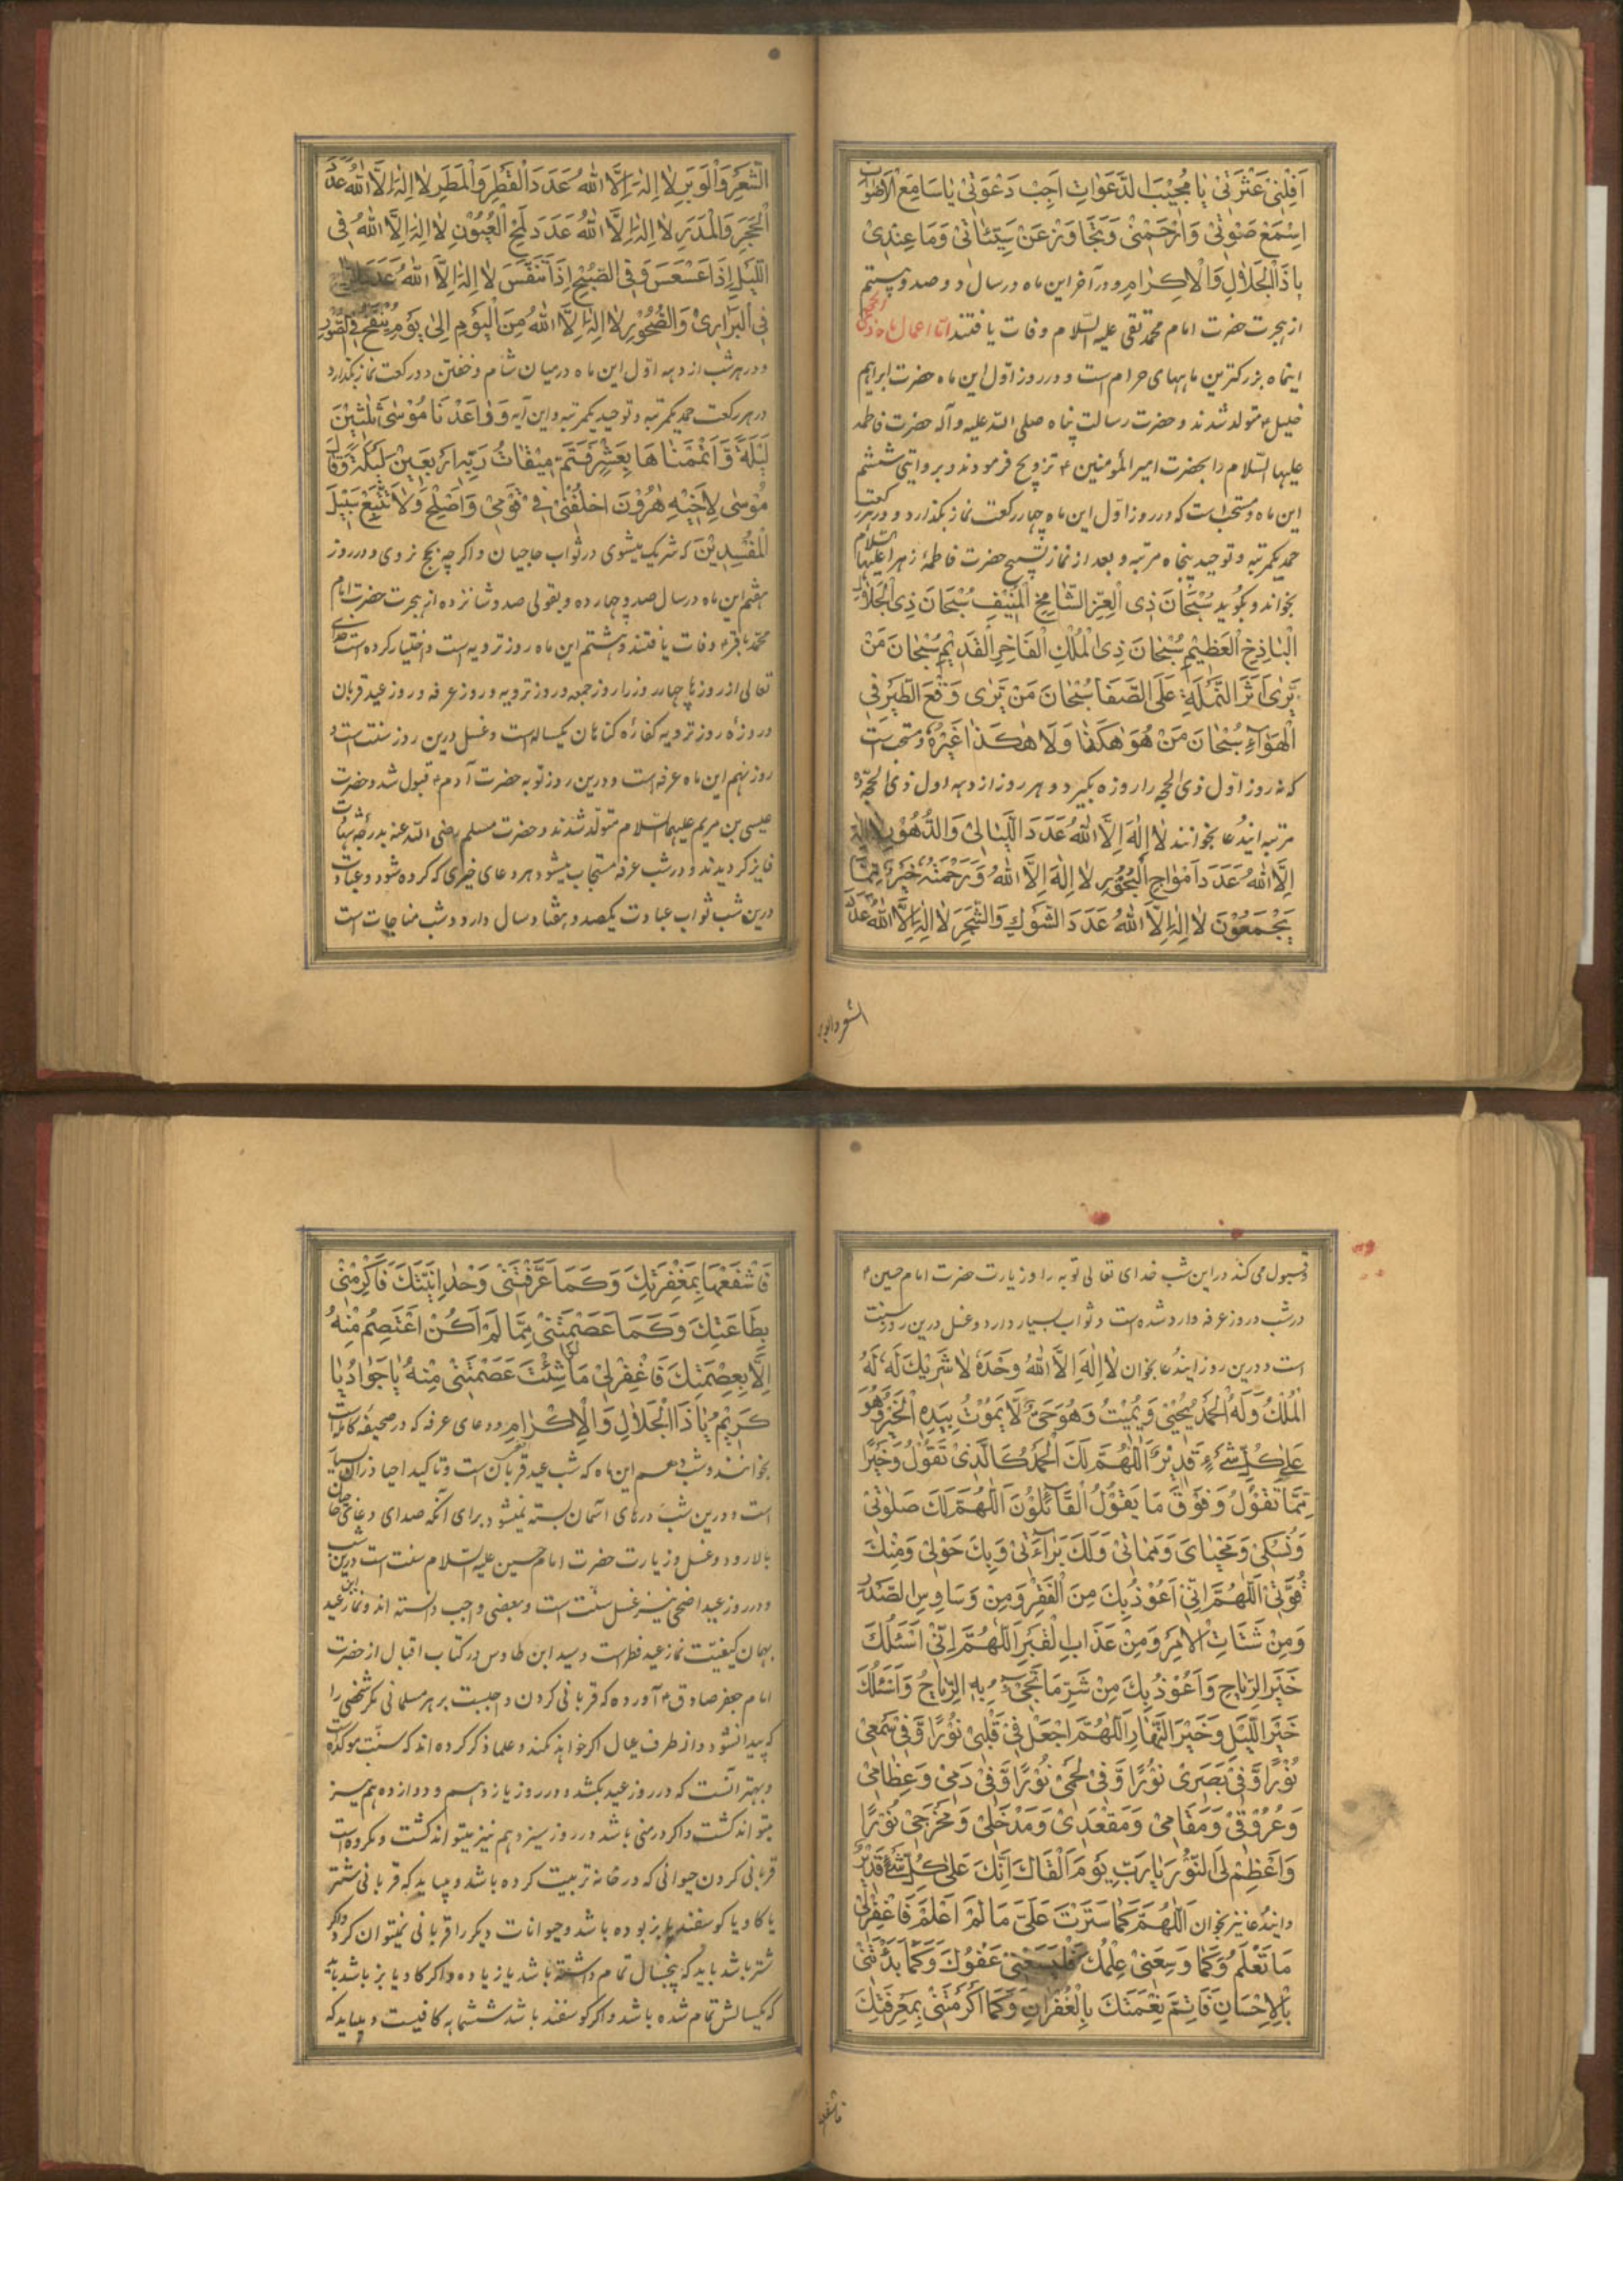 اَقِلْنِیْ عَثْرَتِیْ یَا مُجِیْبَ الدَّعَوَاتِ اَجِبْ دَعْوَتِیْ یَا سَامِعَ الْاَصْوَاتِ
اِسْمَعْ صَوْتِیْ وَارْحَمْنِیْ وَتَجَاوَزْ عَنْ سَیِّئَاتِیْ وَمَا عِنْدِیْ
یَا ذَا الْجَلَالِ وَالْاِکْرَامِ و در آخر این ماه در سال دو صد و بیستم
از هجرت حضرت امام محمد تقی علیه السّلام وفات یافتند امّا اعمال ماه ذی الحجه
اینماه بزرکترین ماههای حرام است و در روز اوّل این ماه حضرت ابراهیم
خلیل ع متولد شدند و حضرت رسالت پناه صلی الله علیه وآله حضرت فاطمه
علیها السّلام را بحضرت امیر المؤمنین ع تزویج فرمودند و بروایتی ششم
این ماه و مستحبّ است که در روز اوّل این ماه چهار رکعت نماز بکذارد و در هر رکعت
حمد یکمرتبه و توحید پنجاه مرتبه و بعد از نماز تسبیح حضرت فاطمهٔ زهرا علیها السّلام
بخواند و بکوید سُبْحَانَ ذِی الْعِزِّ الشَّامِخِ الْمُنِیْفِ سُبْحَانَ ذِی الْجَلَالِ
الْبَاذِخِ الْعَظِیْمِ سُبْحَانَ ذِی الْمُلْكِ الْفَاخِرِ الْقَدِیْمِ سُبْحَانَ مَنْ
یَرٰی اَثَرَ النَّمْلَةِ عَلَی الصَّفَا سُبْحَانَ مَنْ یَرٰی وَقْعَ الطَّیْرِ فِی
الْهَوَاءِ سُبْحَانَ مَنْ هُوَ هٰكَذَا وَلَا هٰكَذَا غَیْرُهٗ و مستحبّ است
که نه روز اوّل ذی الحجه را روزه بکیرد و هر روز از دهه اول ذی الحجّه ده
مرتبه ایندعا بخوانند لَا اِلٰهَ اِلَّا اللّٰهُ عَدَدَ اللَّیَالِیْ وَالدُّهُوْرِ لَا اِلٰهَ
اِلَّا اللّٰهُ عَدَدَ اَمْوَاجِ الْبُحُوْرِ لَا اِلٰهَ اِلَّا اللّٰهُ وَرَحْمَتُهٗ خَیْرٌ مِّمَّا
یَجْمَعُوْنَ لَا اِلٰهَ اِلَّا اللّٰهُ عَدَدَ الشَّوْكِ وَالشَّجَرِ لَا اِلٰهَ اِلَّا اللّٰهُ عَدَدَ
الشعر والوبر
الشَّعْرِ وَالْوَبَرِ لَا اِلٰهَ اِلَّا اللّٰهُ عَدَدَ الْقَطْرِ وَالْمَطَرِ لَا اِلٰهَ اِلَّا اللّٰهُ عَدَدَ
الْحَجَرِ وَالْمَدَرِ لَا اِلٰهَ اِلَّا اللّٰهُ عَدَدَ لَمْحِ الْعُیُوْنِ لَا اِلٰهَ اِلَّا اللّٰهُ فِی
اللَّیْلِ اِذَا عَسْعَسَ وَفِی الصُّبْحِ اِذَا تَنَفَّسَ لَا اِلٰهَ اِلَّا اللّٰهُ عَدَدَ الرِّیَاحِ
فِی الْبَرَارِیْ وَالصُّخُوْرِ لَا اِلٰهَ اِلَّا اللّٰهُ مِنَ الْیَوْمِ اِلٰی یَوْمِ یُنْفَخُ فِی الصُّوْرِ
و در هر شب از دهه اوّل این ماه درمیان شام و خفتن دو رکعت نماز بکذارد
در هر رکعت حمد یکمرتبه و توحید یکمرتبه و این آیه وَوَاعَدْنَا مُوْسٰی ثَلٰثِیْنَ
لَیْلَةً وَّاَتْمَمْنَاهَا بِعَشْرٍ فَتَمَّ مِیْقَاتُ رَبِّهٖ اَرْبَعِیْنَ لَیْلَةً وَقَالَ
مُوْسٰی لِاَخِیْهِ هٰرُوْنَ اخْلُفْنِیْ فِیْ قَوْمِیْ وَاَصْلِحْ وَلَا تَتَّبِعْ سَبِیْلَ
الْمُفْسِدِیْنَ که شریك میشوی در ثواب حاجیان و اکرچه بحج نروی و در روز
هفتم این ماه در سال صد و چهارده و بقولی صد و شانزده از هجرت حضرت امام
محمد باقر ع وفات یافتند و هشتم این ماه روز ترویه است و اختیار کرده است خدای
تعالی از روزها چهار روز را روز جمعه و روز ترویه و روز عرفه و روز عید قربان
و روزهٔ روز ترویه کفارهٔ کناهان یکساله است و غسل درین روز سنّت است و
روز نهم این ماه عرفه است و درین روز توبه حضرت آدم ع قبول شد و حضرت
عیسی بن مریم علیهما السّلام متولّد شدند و حضرت مسلم رضی الله عنه بدرجه شهادت
فایز کردیدند و در شب عرفه مستجاب میشود هر دعای خیری که کرده شود و عبادت
درین شب ثواب عبادت یکصد و هفتاد سال دارد و شب مناجات است
و قبول می کند در این شب خدای تعالی توبه را و زیارت حضرت امام حسین ع
در شب و روز عرفه وارد شده است و ثواب بسیار دارد و غسل درین روز سنّت
است و درین روز ایندعا بخوان لَا اِلٰهَ اِلَّا اللّٰهُ وَحْدَهٗ لَا شَرِیْكَ لَهٗ لَهُ
الْمُلْكُ وَلَهُ الْحَمْدُ یُحْیِیْ وَیُمِیْتُ وَهُوَ حَیٌّ لَّا یَمُوْتُ بِیَدِهِ الْخَیْرُ وَهُوَ
عَلٰی كُلِّ شَیْءٍ قَدِیْرٌ اَللّٰهُمَّ لَكَ الْحَمْدُ كَالَّذِیْ تَقُوْلُ وَخَیْرًا
مِّمَّا نَقُوْلُ وَفَوْقَ مَا یَقُوْلُ الْقَائِلُوْنَ اَللّٰهُمَّ لَكَ صَلٰوتِیْ
وَنُسُكِیْ وَمَحْیَایَ وَمَمَاتِیْ وَلَكَ بَرَاءَتِیْ وَبِكَ حَوْلِیْ وَمِنْكَ
قُوَّتِیْ اَللّٰهُمَّ اِنِّیْ اَعُوْذُ بِكَ مِنَ الْفَقْرِ وَمِنْ وَسَاوِسِ الصَّدْرِ
وَمِنْ شَتَاتِ الْاَمْرِ وَمِنْ عَذَابِ الْقَبْرِ اَللّٰهُمَّ اِنِّیْ اَسْئَلُكَ
خَیْرَ الرِّیَاحِ وَاَعُوْذُ بِكَ مِنْ شَرِّ مَا تَجِیْءُ بِهِ الرِّیَاحُ وَاَسْئَلُكَ
خَیْرَ اللَّیْلِ وَخَیْرَ النَّهَارِ اَللّٰهُمَّ اجْعَلْ فِیْ قَلْبِیْ نُوْرًا وَّفِیْ سَمْعِیْ
نُوْرًا وَّفِیْ بَصَرِیْ نُوْرًا وَّفِیْ لَحْمِیْ نُوْرًا وَّفِیْ دَمِیْ وَعِظَامِیْ
وَعُرُوْقِیْ وَمَقَامِیْ وَمَقْعَدِیْ وَمَدْخَلِیْ وَمَخْرَجِیْ نُوْرًا
وَاَعْظِمْ لِیَ النُّوْرَ یَا رَبِّ یَوْمَ اَلْقَاكَ اِنَّكَ عَلٰی كُلِّ شَیْءٍ قَدِیْرٌ
و ایندعا نیز بخوان اَللّٰهُمَّ كَمَا سَتَرْتَ عَلَیَّ مَا لَمْ اَعْلَمْ فَاغْفِرْ لِیْ
مَا تَعْلَمُ وَكَمَا وَسِعَنِیْ عِلْمُكَ فَلْیَسَعْنِیْ عَفْوُكَ وَكَمَا بَدَأْتَنِیْ
بِالْاِحْسَانِ فَاَتِمَّ نِعْمَتَكَ بِالْغُفْرَانِ وَكَمَا اَكْرَمْتَنِیْ بِمَعْرِفَتِكَ
فاشفعها
فَاشْفَعْهَا بِمَغْفِرَتِكَ وَكَمَا عَرَّفْتَنِیْ وَحْدَانِیَّتَكَ فَاَكْرِمْنِیْ
بِطَاعَتِكَ وَكَمَا عَصَمْتَنِیْ مِمَّا لَمْ اَكُنْ اَعْتَصِمُ مِنْهُ
اِلَّا بِعِصْمَتِكَ فَاغْفِرْ لِیْ مَا لَوْ شِئْتَ عَصَمْتَنِیْ مِنْهُ یَا جَوَادُ یَا
كَرِیْمُ یَا ذَا الْجَلَالِ وَالْاِكْرَامِ و دعای عرفه که در صحیفهٔ کامله است
بخوانند و شب دهم این ماه که شب عید قربان است و تاکید احیا در آن بسیار
است و درین شب درهای آسمان بسته نمیشود برای آنکه صدای دعای
بالا رود و غسل و زیارت حضرت امام حسین علیه السّلام سنت است درین شب
و در روز عید اضحی نیز غسل سنّت است و بعضی واجب دانسته اند و نماز این عید
بهمان کیفیّت نماز عید فطر است و سید ابن طاوس در کتاب اقبال از حضرت
امام جعفر صادق ع آورده که قربانی کردن واجبست بر هر مسلمانی مکر شخصی را
که پیدا نشود و از طرف عیال اکر خواهد نکند و علما ذکر کرده اند که سنّت موکده است
و بهتر آنست که در روز عید بکشد و در روز یازدهم و دوازدهم نیز
میتواند کشت و اکر در منی باشد در روز سیزدهم نیز میتواند کشت و مکروه است
قربانی کردن حیوانی که در خانه تربیت کرده باشد و میباید که قربانی شتر
یا کاو یا کوسفند یا بز بوده باشد و حیوانات دیکر را قربانی نمیتوان کرد و اکر
شتر باشد باید که پنجسال تمام داشته باشد یا زیاده و اکر کاو یا بز باشد باید
که یکسالش تمام شده باشد و اکر کوسفند باشد ششماهه کافیست و میباید که